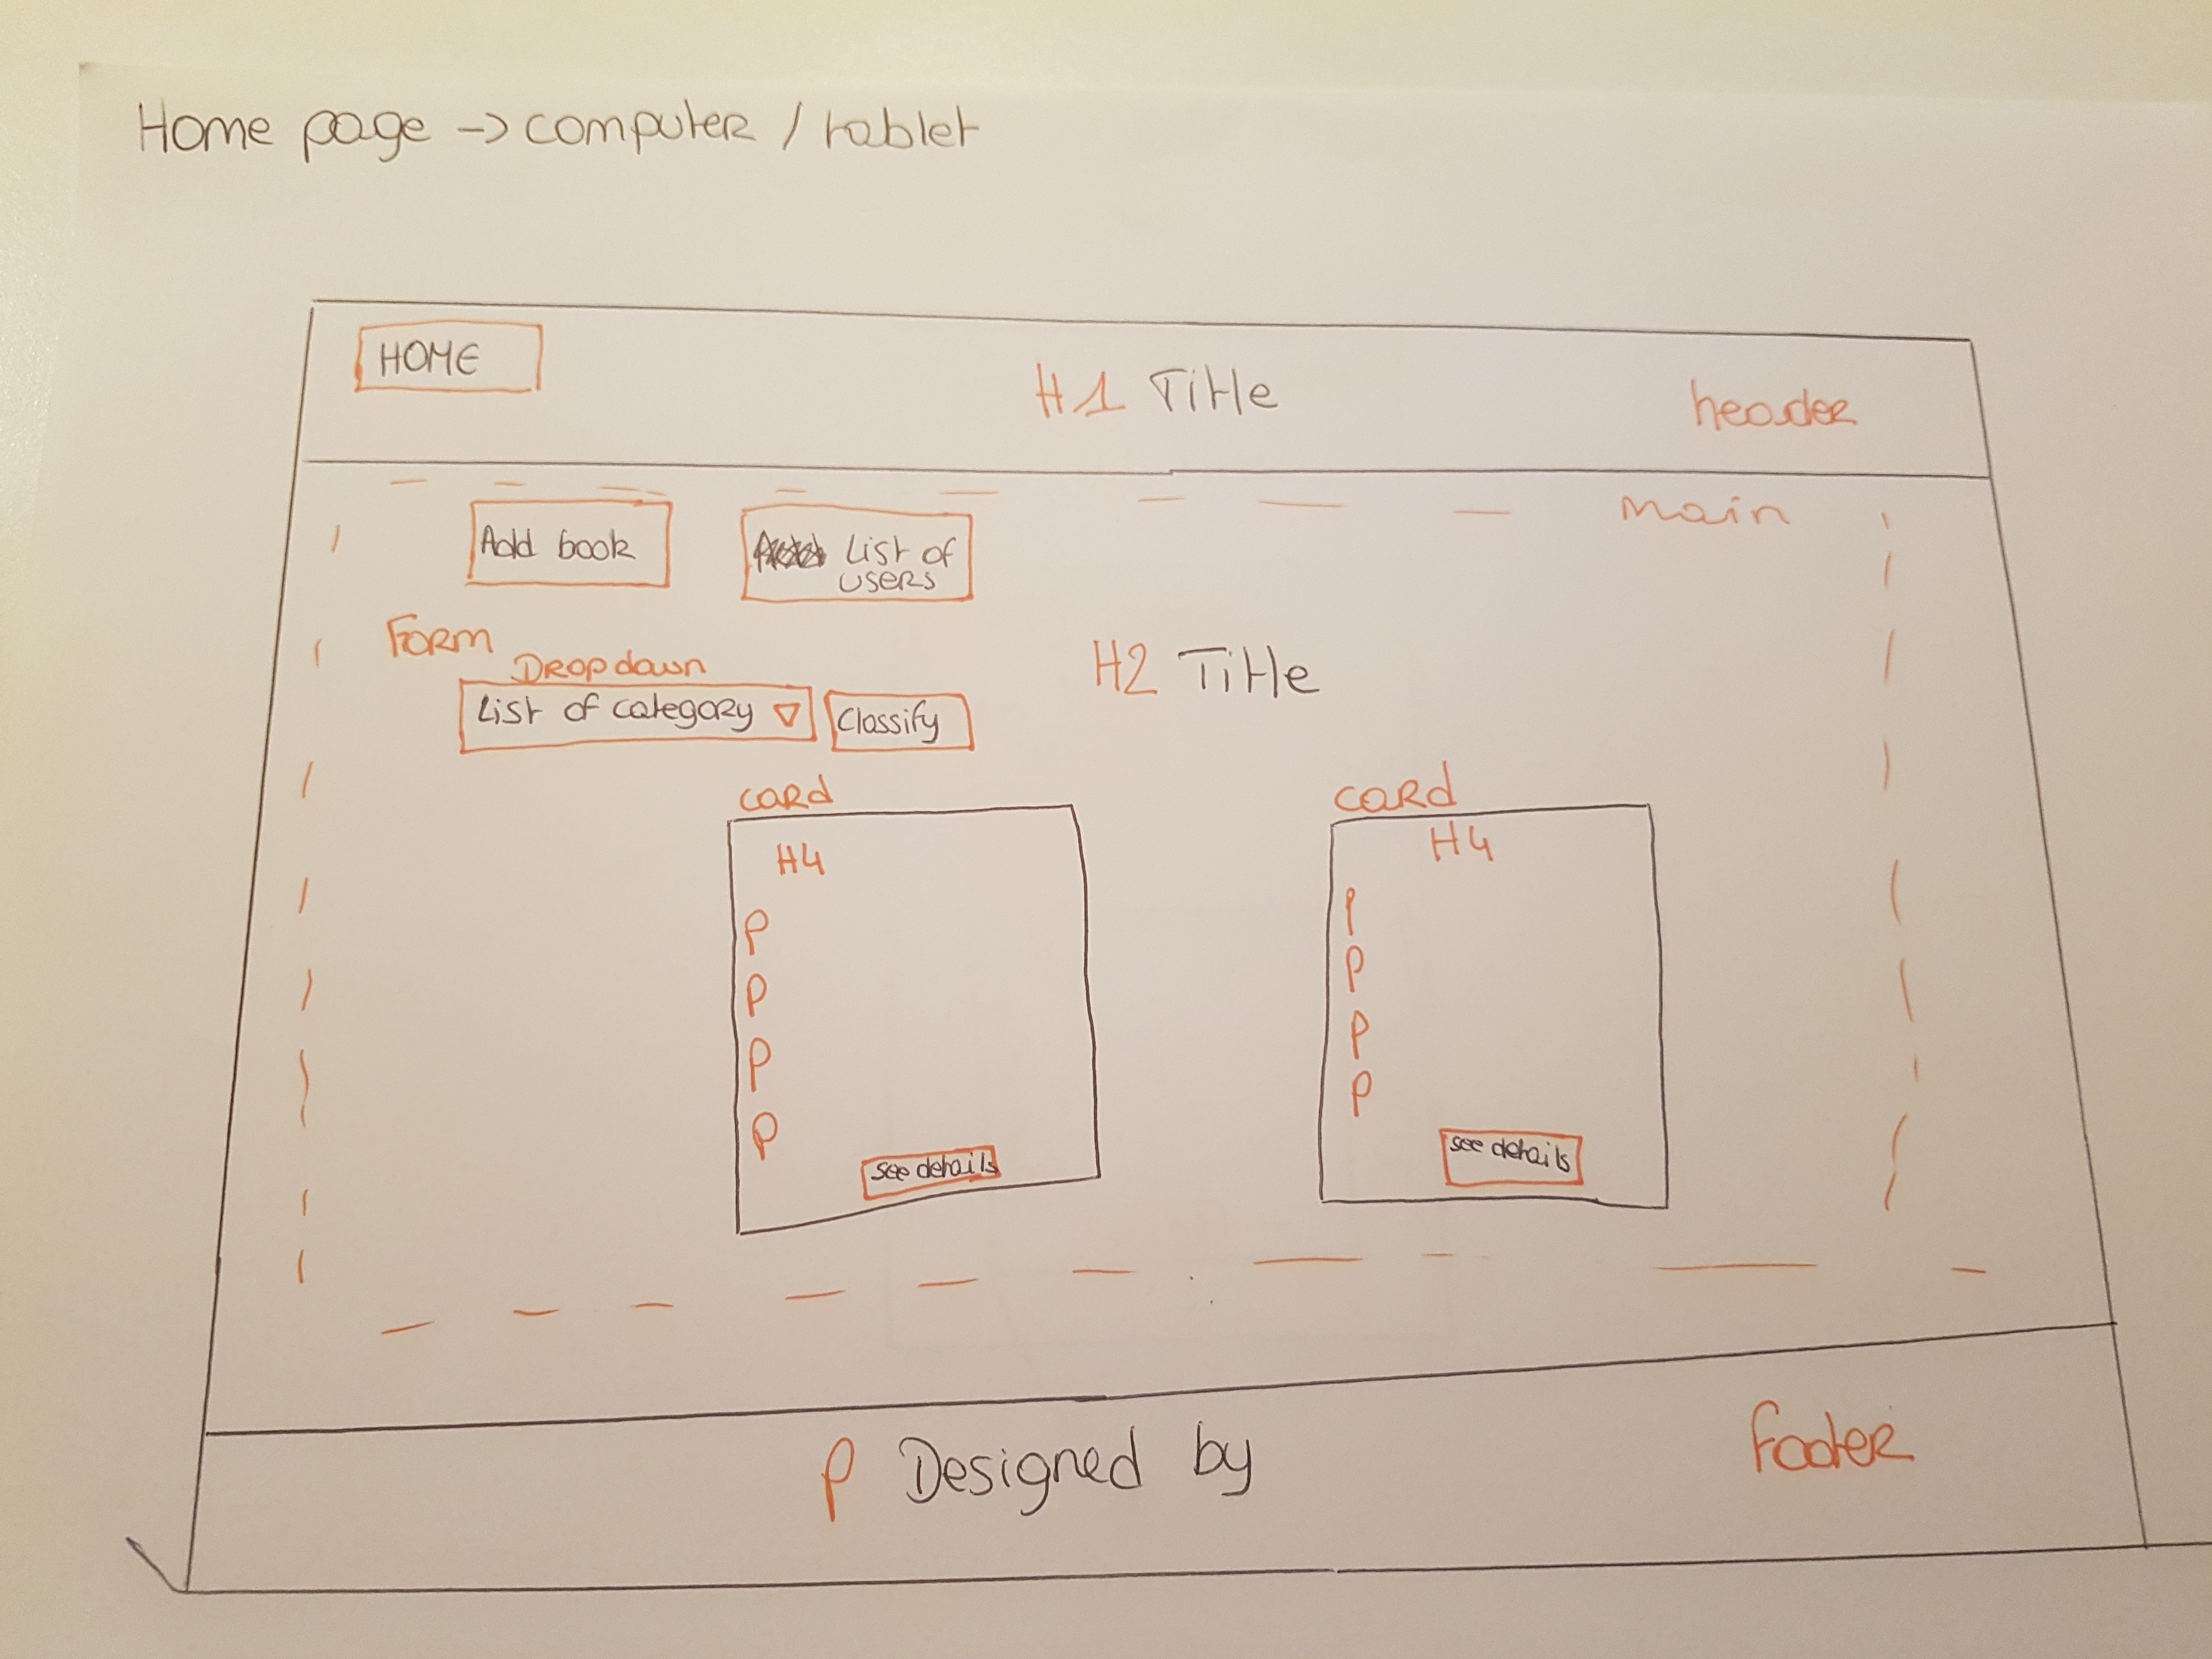 Home page -> computer / tablet
HOME
H1 Title
header
main
Add book
List of
users
Form
Dropdown
List of category
Classify
H2 Title
card
H4
P
P
P
P
see details
card
H4
P
P
P
P
see details
P Designed by
footer